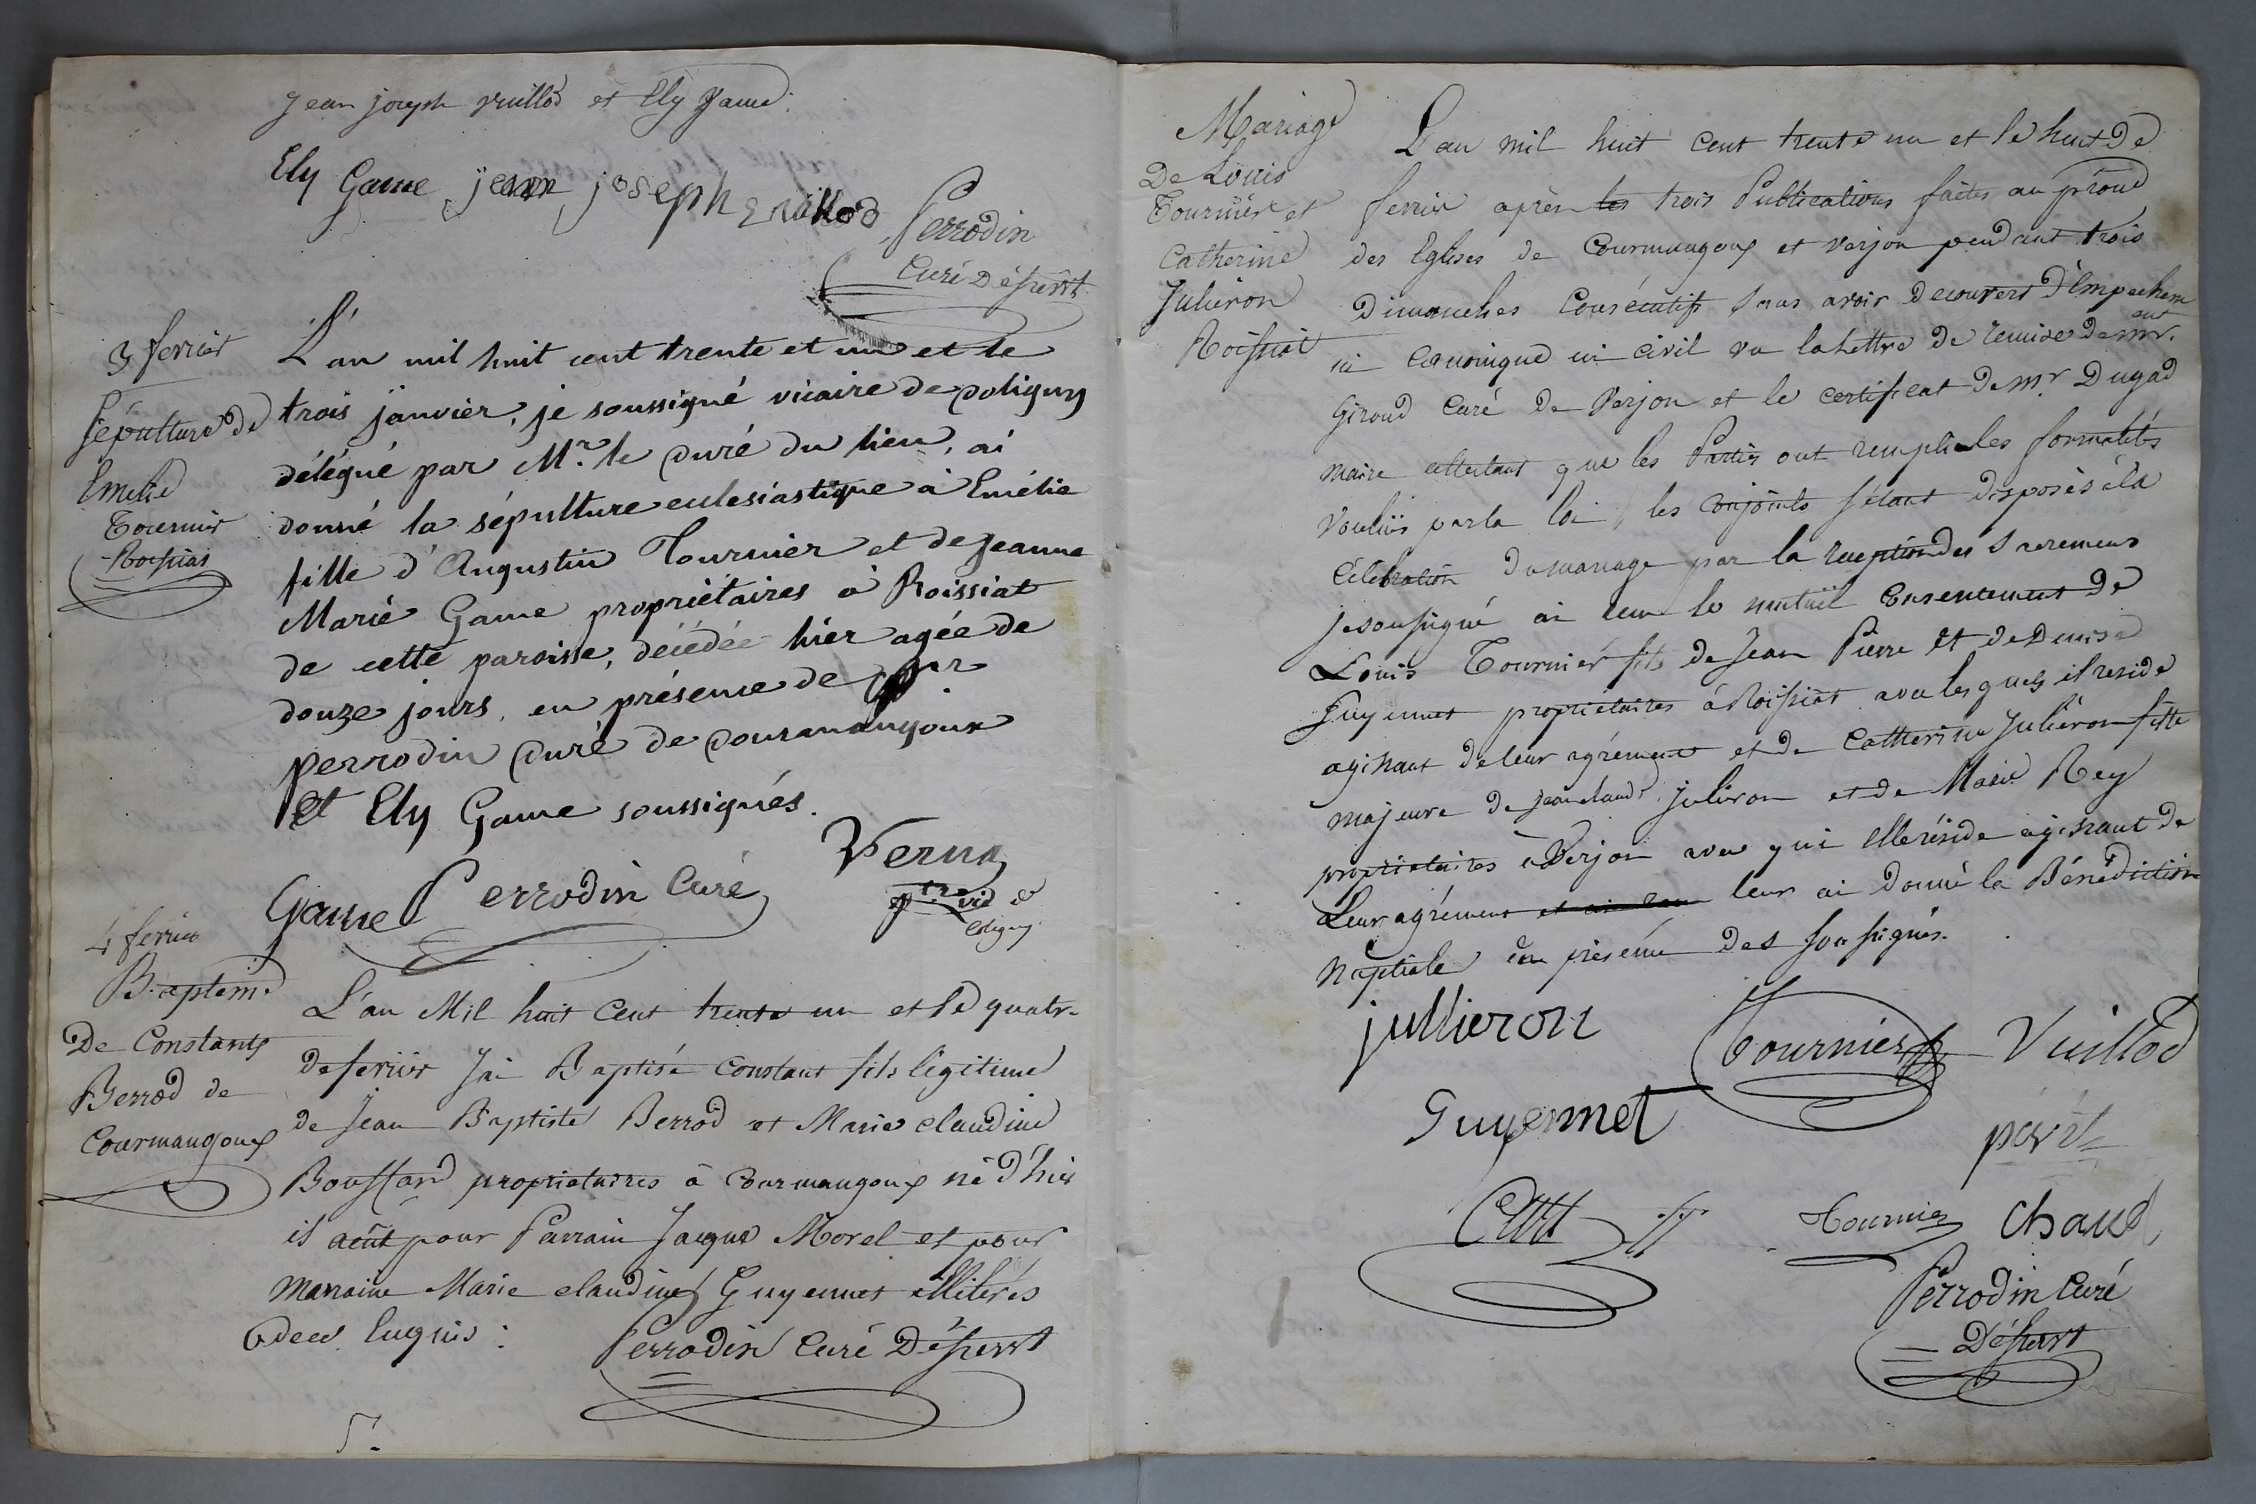 Jean joseph vuillod et Ely Game.
Ely Game jean joseph vuillod
Perrodin
Curé Désservt
3 fevrier
Sépulture de
Emelie
Tournier
Roissiat
L'an mil huit cent trente et un et le
trois janvier, je soussigné vicaire de coligny
délégué par Mr. le curé du lieu, ai
donné la sépulture eclesiastique à Emélie
fille d'Augustin Tournier et de Jeanne
Marie Game propriétaires à Roissiat
de cette paroisse, décédée hier agée de
douze jours, en présence de
perrodin curé de courmangoux
et Ely Game soussignés.
Game Perrodin Curé
Verna
ptre vic
Coligny
4 fevrier
Baptême
De Constant
Berrod de
Courmangoux
L'an Mil huit Cent trente un et le quatre
de fevrier J'ai Baptisé Constant fils légitime
de Jean Baptiste Berrod et Marie claudine
Bouffard propriétaires à Courmangoux né d'hier
il a eût pour Parrain Jacques Morel et pour
Marraine Marie claudine Guyennet illiterés
de ce Enquis :
Perrodin Curé Désservt
5.
Mariage
De Louis
Tournier et
Catherine
Julieron
Roissiat
L'an mil huit Cent trente un et le huit De
fevrier après les trois Publications faites au prône
des Eglises de Courmangoux et verjon pendant trois
Dimanches Consécutifs sans avoir decouvert d'Empechem
ent
ni Canonique ni Civil vu la Lettre de remise de mr.
Giroud Curé de Verjon et le certificat de mr. Dugad
maire attestant que les Parties ont remplis les formalités
Voulües par la loi, les Conjoints s'étant disposés à la
Célébration du mariage par la reception des Sacremens
je soussigné ai reçu le mutuël Consentement de
Louis Tournier fils de Jean Pierre et de Denise
Guyennet propriétaires à Roissiat avec lesquels il reside
agissant de leur agrément et de Catherine Julieron fille
majeure de jean claude Julieron et de Marie Rey
propriétaires à Verjon avec qui elle réside agissant de
Leur agrément et leur ai donné la Bénédiction
Nuptiale en présence des soussignés.
jullieron
Tournier
Vuillod
Guyennet
Tournier
Chanel
Perrodin Curé
Désservt